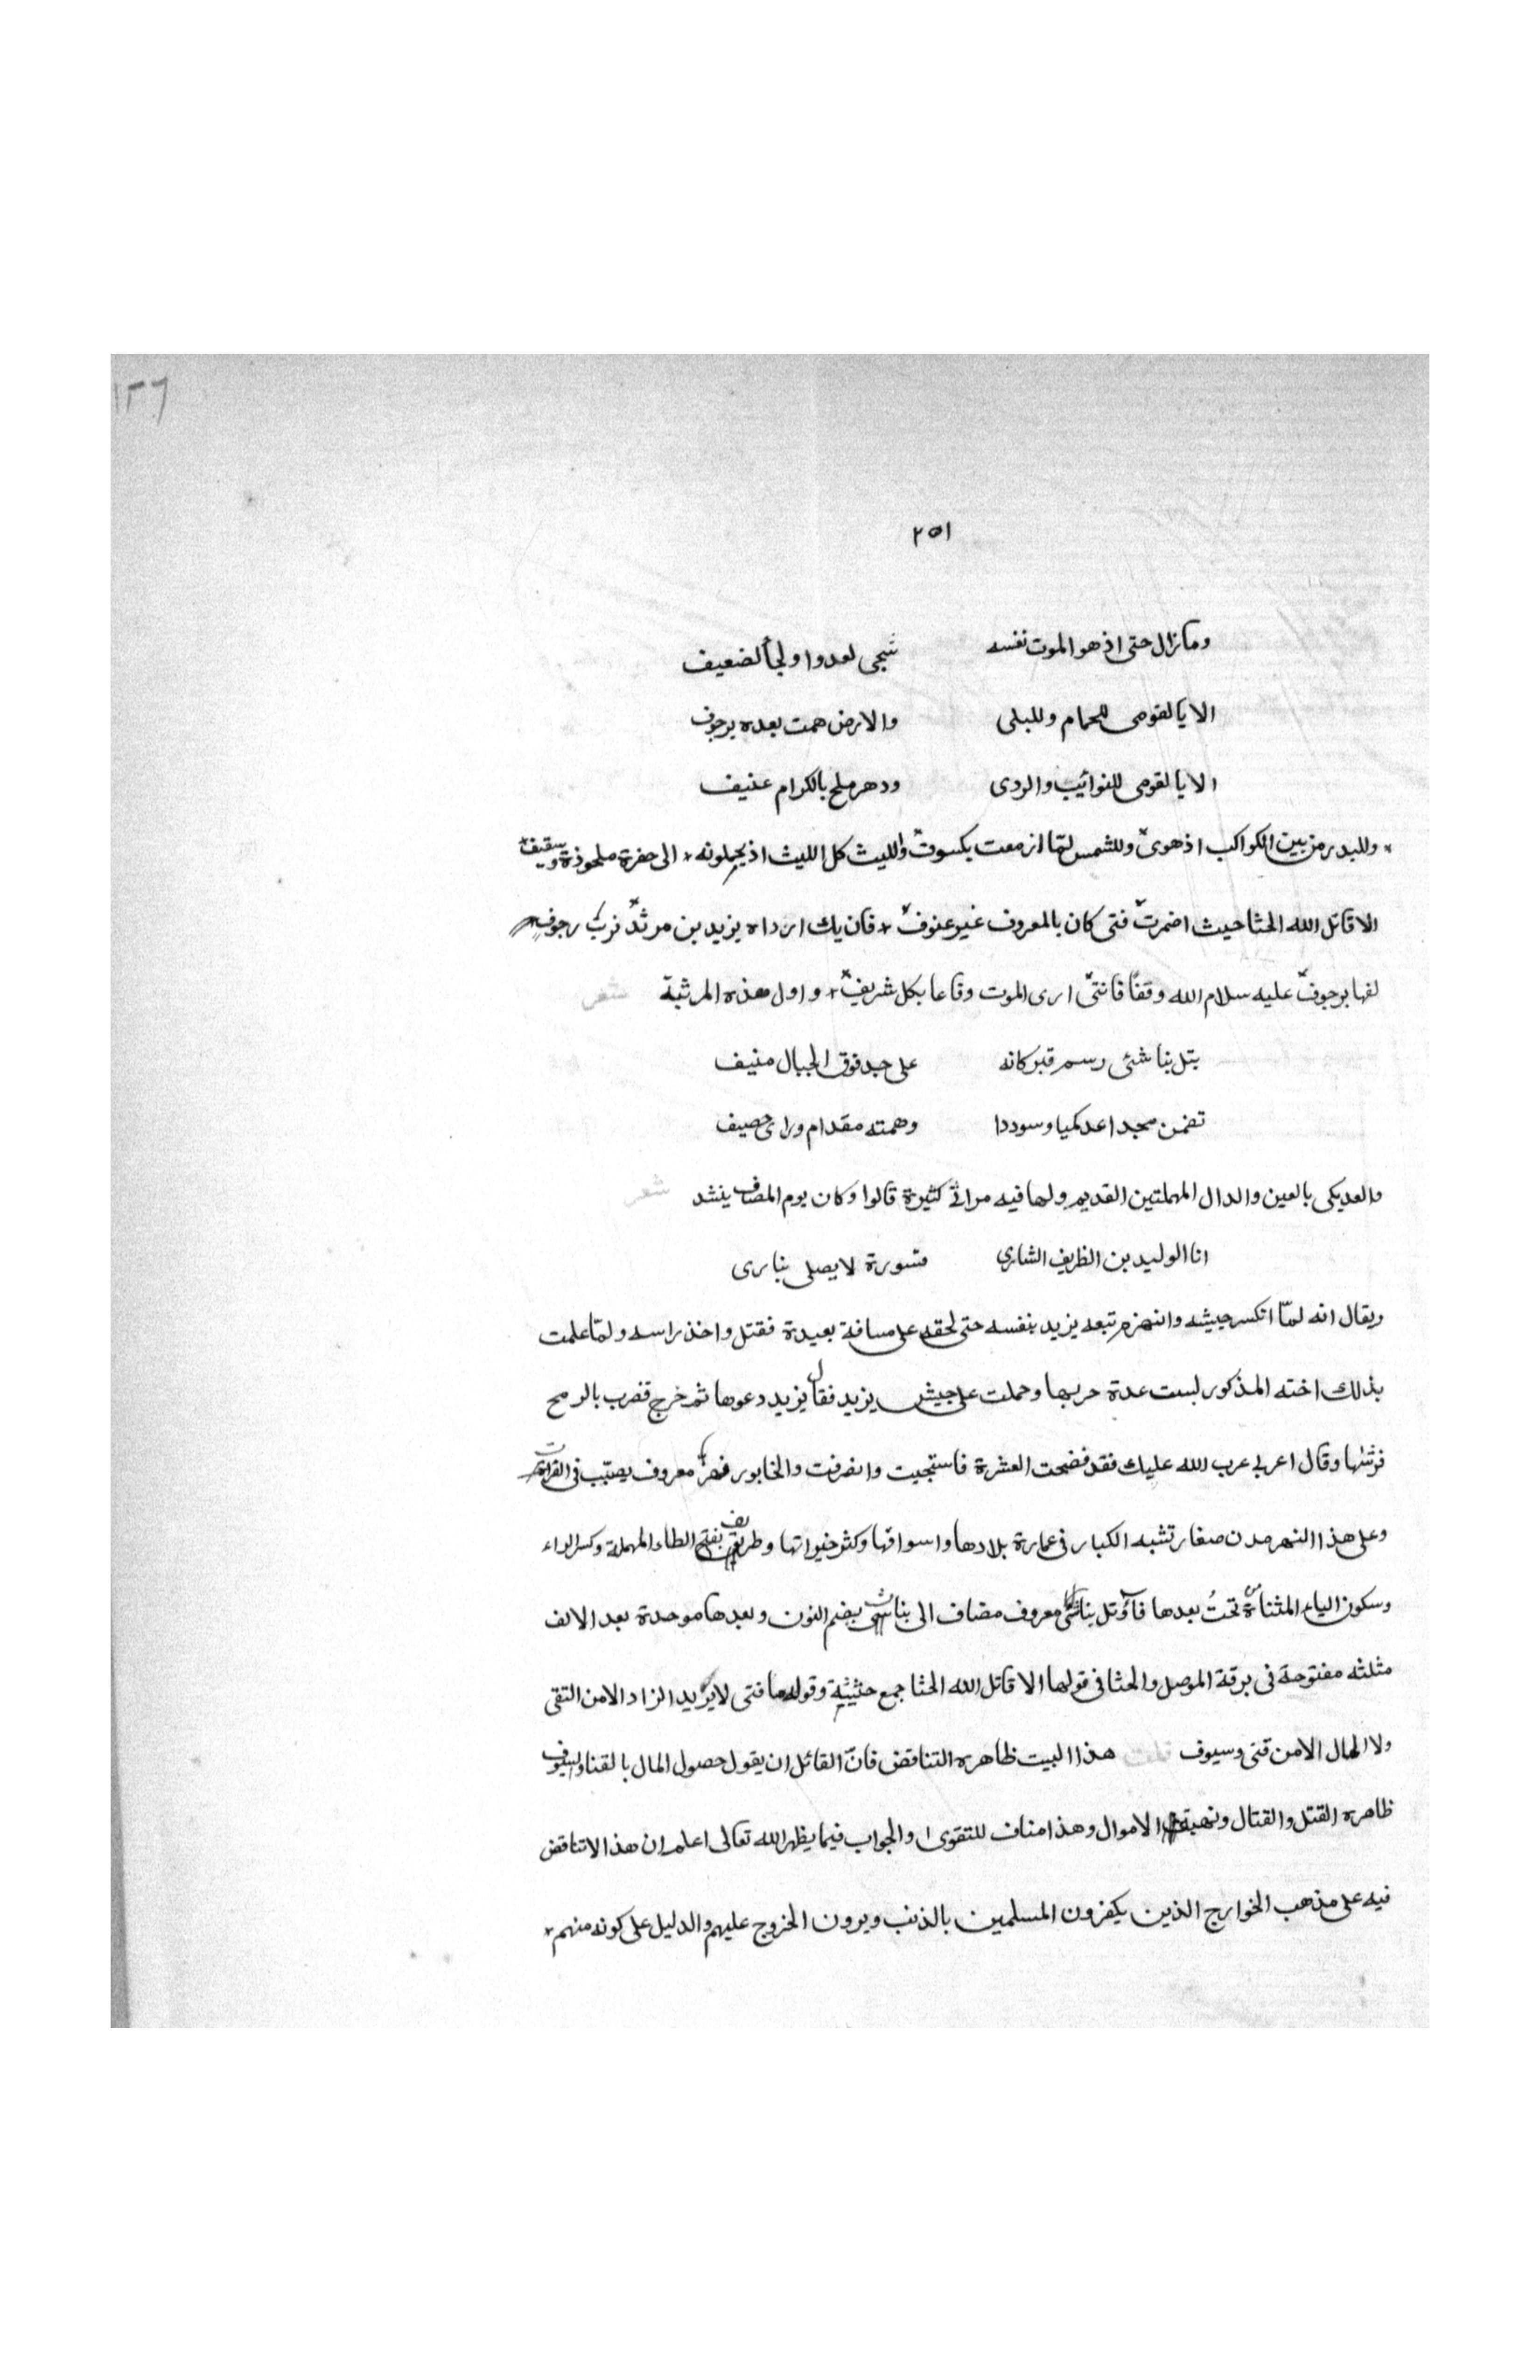 ١٢٦
٢٥١
وما زال حتى اذ هو الموت نفسه شجى لعدوا ولجأ لضعيف
الا يا لقومى للحمام وللبلى والارض همت بعده برجوف
الا يا لقومى للنوائيب والردى ودهر ملح بالكرام عنيف
وللبدر من بين الكواكب اذ هوى وللشمس لمّا ازمعت بكسوف والليث كل الليث اذ يحملونه الى حفرة ملحوذة وسقيف
الا قاتل الله الحثا حيث اضمرت فتى كان بالمعروف غير عنوف فان يك ارداه يزيد بن مرثد فربّ رجوف
لفها برجوف عليه سلام الله وقفًا فانتى ارى الموت وقاعا بكل شريف واول هذه المرثية شعر
بتل بناشى رسم قبر كانه على جبد فوق الجبال منيف
تضمن مجدا عدكميا وسوددا وهمته مقدام وراى حصيف
والعديكى بالعين والدال المهملتين القديم ولها فيه مراثى كثيرة قالوا وكان يوم المصاف ينشد شعر
انا الوليد بن الظريف الشارى قسورة لا يصلى بنارى
ويقال انه لمّا انكسر جيشه وانهزم تبعه يزيد بنفسه حتى لحقه على مسافة بعيدة فقتل واخذ راسه ولمّا علمت
بذلك اخته المذكور لبست عدة حربها وحملت على جيش يزيد فقال يزيد دعوها ثم خرج فضرب بالرمح
فرشها وقال اعربى عرب الله عليك فقد فضحت العشرة فاستجيت وانصرفت والخابور فهر معروف يصبّب فى الفرات
وعلى هذا النهر مدن صغار تشبه الكبار فى عمارة بلادها واسواقها وكثر خيراتها وطريف بفتح الطاء المهملة وكسر الراء
وسكون الياء المثناة من تحت بعدها فآوتل بناثى معروف مضاف الى بناشى بضم النون وبعدها موحدة بعد الالف
مثلثه مفتوحة فى برقة الموصل والحثا فى قولها الا قاتل الله الحثا جمع حثيثة وقولها فتى لا يريد الزاد الا من التقى
ولا المال الا من قنى وسيوف قلت هذا البيت ظاهره التناقض فانّ القائل ان يقول حصول المال بالقنا والسيوف
ظاهره القتل والقتال ونهبة الاموال وهذا مناف للتقوى والجواب فيما يظهر الله تعالى اعلم ان هذا لا تناقض
فيه على مذهب الخوارج الذين يكفرون المسلمين بالذنب ويرون الخروج عليهم والدليل على كونه منهم